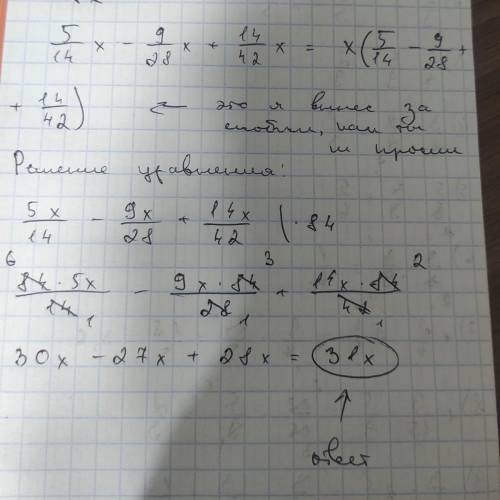 5/14 x - 9/28 x + 14/42 x = x(5/14 - 9/28 +
+ 14/42) ← это я вынес за
скобки, как ты
и просил
Решение уравнения:
5x/14 - 9x/28 + 14x/42 | · 84
6 84 · 5x/14 1 - 9x · 84 3/28 1 + 14x · 84 2/42 1
30x - 27x + 28x = 31x
↑
ответ